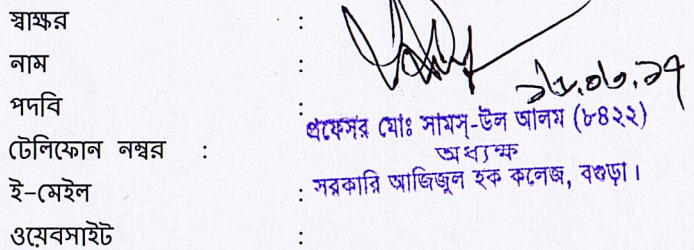 স্বাক্ষর :
নাম :
পদবি :
টেলিফোন নম্বর :
ই-মেইল :
ওয়েবসাইট :
প্রফেসর মোঃ সামস্-উল আলম (৮৪২২)
অধ্যক্ষ
সরকারি আজিজুল হক কলেজ, বগুড়া।